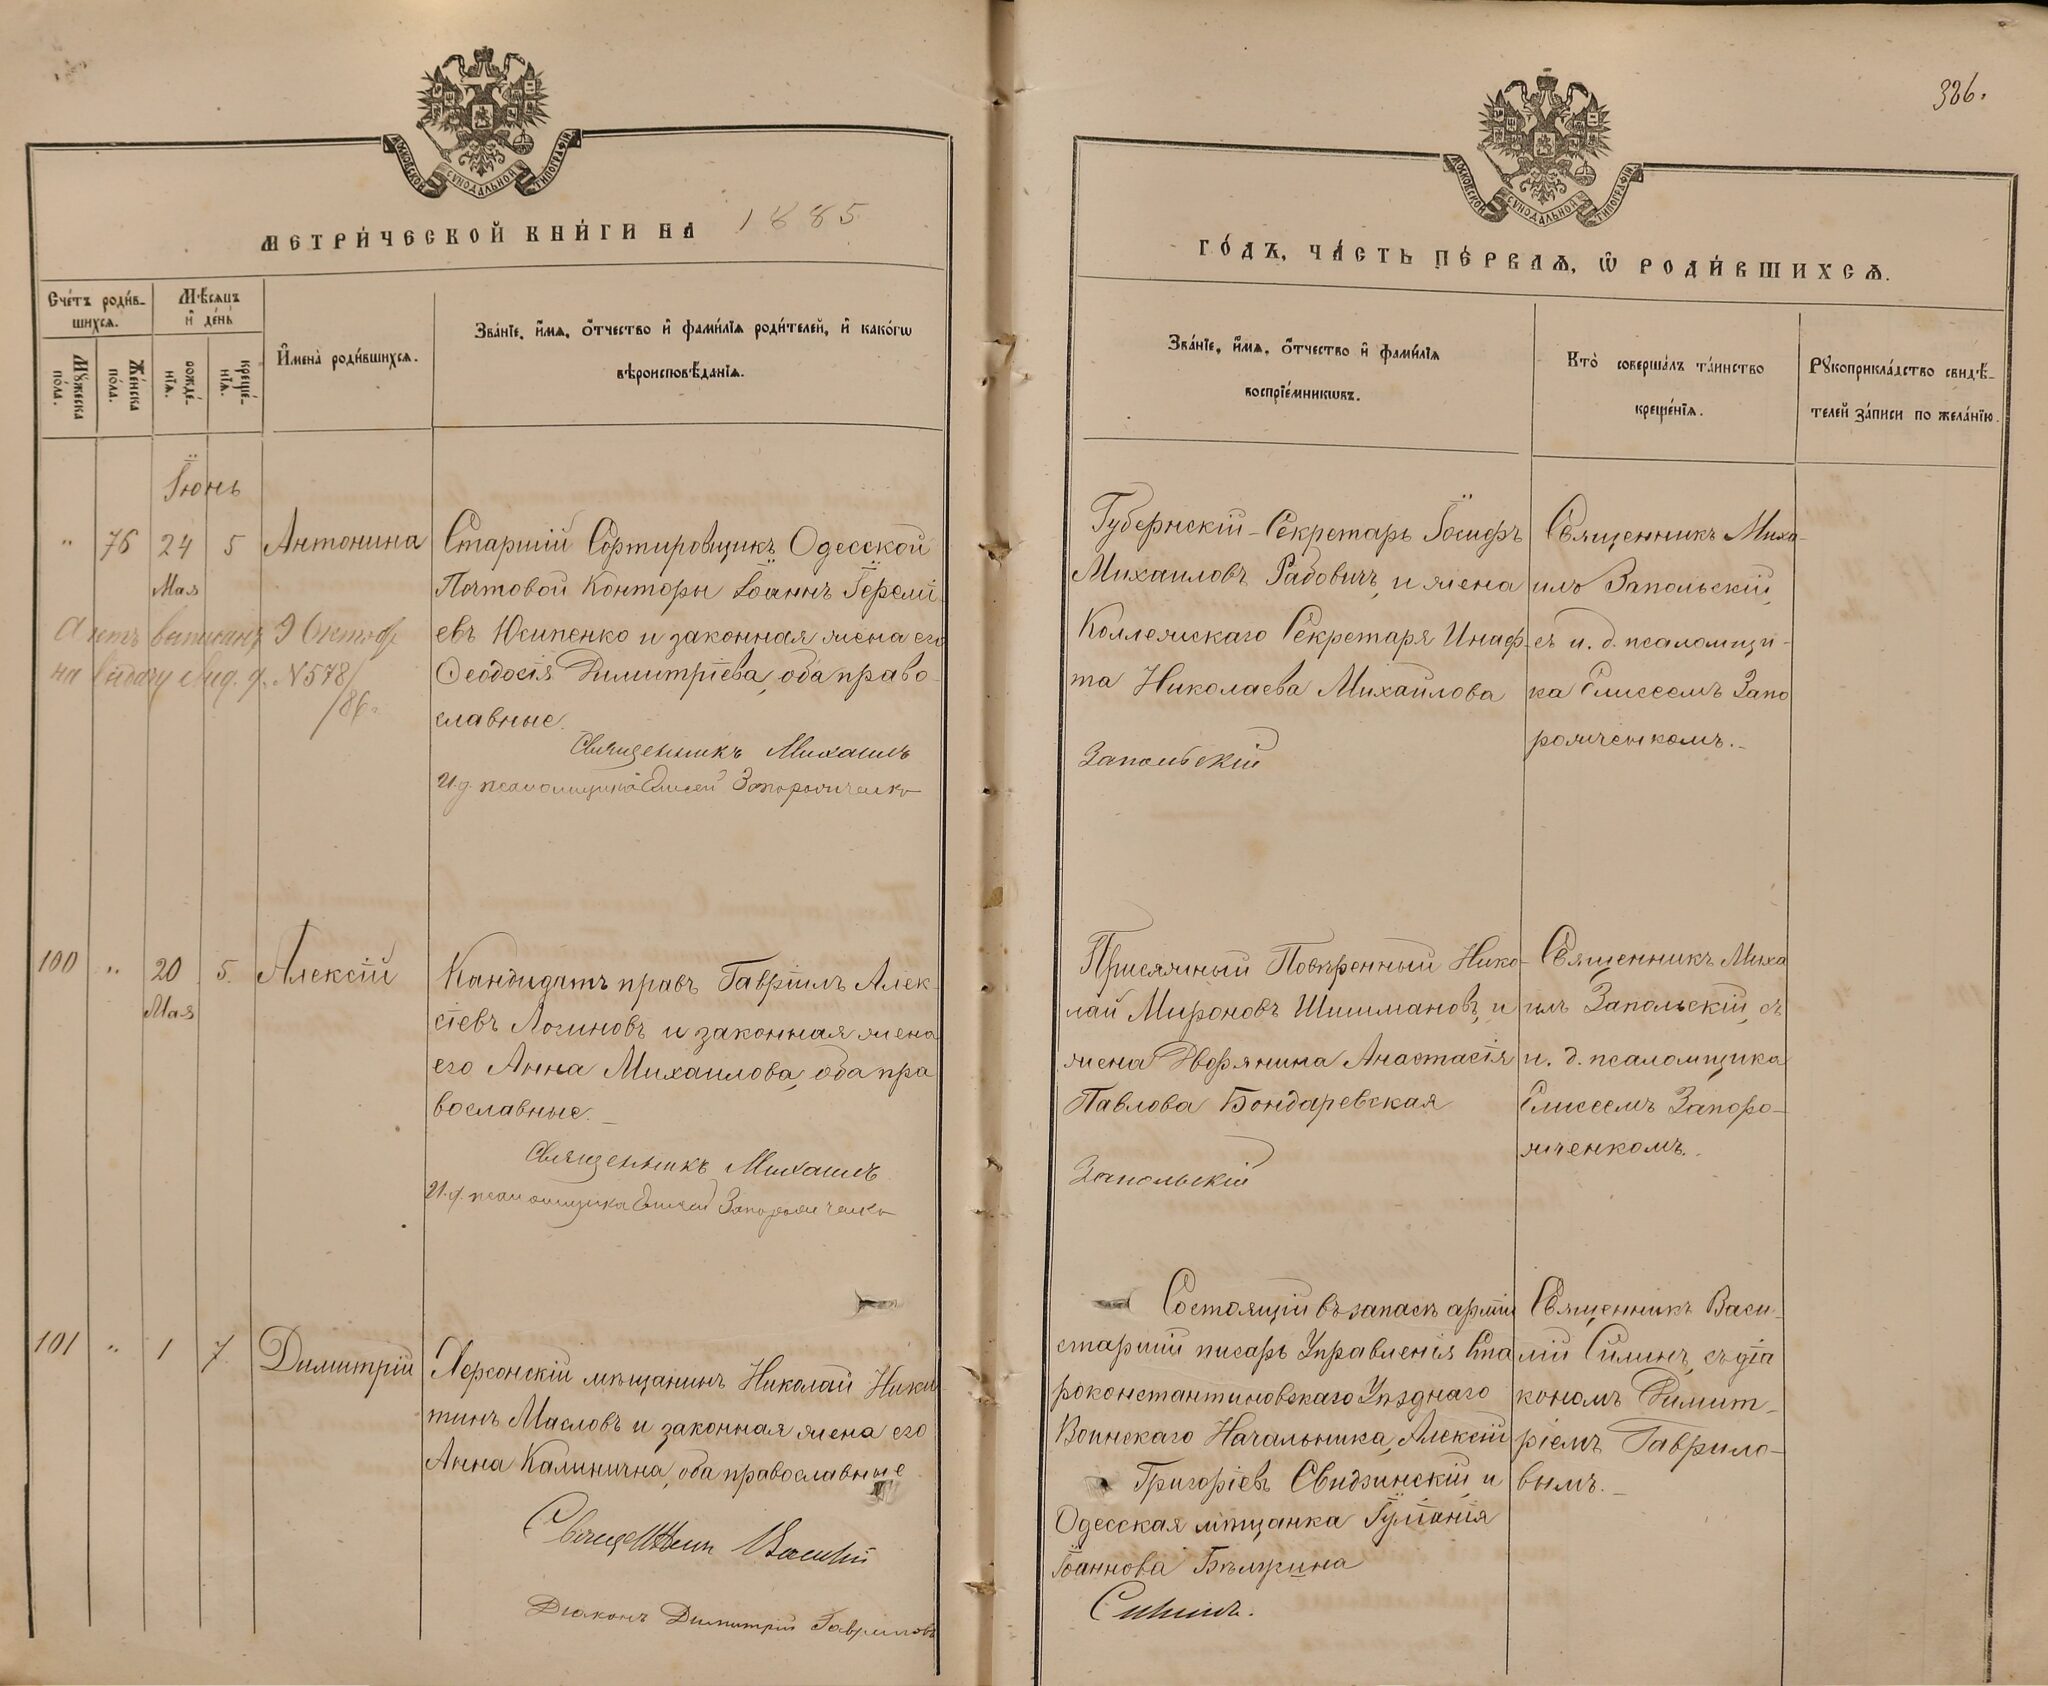 326.
МОСКОВСКОЙ СУНОДАЛЬНОЙ ТИПОГРАФІИ
МЕТРИ́ЧЕСКОЙ КНИ́ГИ НА 1885
Сче́тъ роди́в-
шихсѧ.
Мѣ́сѧцъ
и҆ де́нь
Мꙋ́жеска по́ла.
Же́нска по́ла.
рожде́-
нїѧ.
креще́-
нїѧ.
И҆мена̀ роди́вшихсѧ.
Зва́нїе, и҆́мѧ, ѻ҆́тчество и҆ фами́лїѧ роди́телей, и҆ како́гѡ
вѣроисповѣ́данїѧ.
Іюнь
" 76 24 5 Антонина
Мая
Актъ выписанъ 9 Октяб
на выдачу свид. N 578/
/86
Старшій Сортировщикъ Одесской
Почтовой Конторы Іоаннъ Іеремі-
евъ Юсипенко и законная жена его
Ѳеодосія Димитріева, оба право-
славные.
Священникъ Михаилъ
И.д. псаломщика Елисей Запорожченко
100 " 20 5. Алексій
Мая
Кандидатъ правъ Гавріилъ Алек-
сіевъ Логиновъ и законная жена
его Анна Михаилова, оба пра
вославные.
Священникъ Михаилъ
И.д. псаломщика Елисей Запорожченко
101 " 1 7. Димитрій
Херсонскій мѣщанинъ Николай Ники-
тинъ Масловъ и законная жена его
Анна Калинична, оба православные
Священникъ Василій
Діаконъ Димитрій Гавриловъ
МОСКОВСКОЙ СУНОДАЛЬНОЙ ТИПОГРАФІИ
ГО́ДЪ, ЧА́СТЬ ПЕ́РВАѦ, Ѡ҆ РОДИ́ВШИХСѦ.
Зва́нїе, и҆́мѧ, ѻ҆́тчество и҆ фами́лїѧ
воспрїе́мникѡвъ.
Кто̀ соверша́лъ та́инство
креще́нїѧ.
Рꙋкоприкла́дство свидѣ́-
телей за́писи по жела́нїю.
Губернскій Секретарь Іосифъ
Михаиловъ Радовичъ, и жена
Коллежскаго Секретаря Инаф-
та Николаева Михайлова
Запольскій
Священникъ Миха-
илъ Запольскій,
съ и. д. псаломщи-
ка Елисеемъ Запо
рожченкомъ.
Присяжный Повѣренный Нико-
лай Мироновъ Шишмановъ, и
жена Дворянина Анастасія
Павлова Бондаревская
Запольскій
Священникъ Миха
илъ Запольскій, съ
и. д. псаломщика
Елисеемъ Запоро-
жченкомъ.
Состоящій въ запасѣ арміи
старшій писарь Управленія Ста
роконстантиновскаго Уѣзднаго
Воинскаго Начальника, Алексій
Григоріевъ Свидзинскій, и
Одесская мѣщанка
Іоаннова
Силинъ.
Священникъ Васи-
лій Силинъ, съ діа
кономъ Димит-
ріемъ Гаврило-
вымъ.